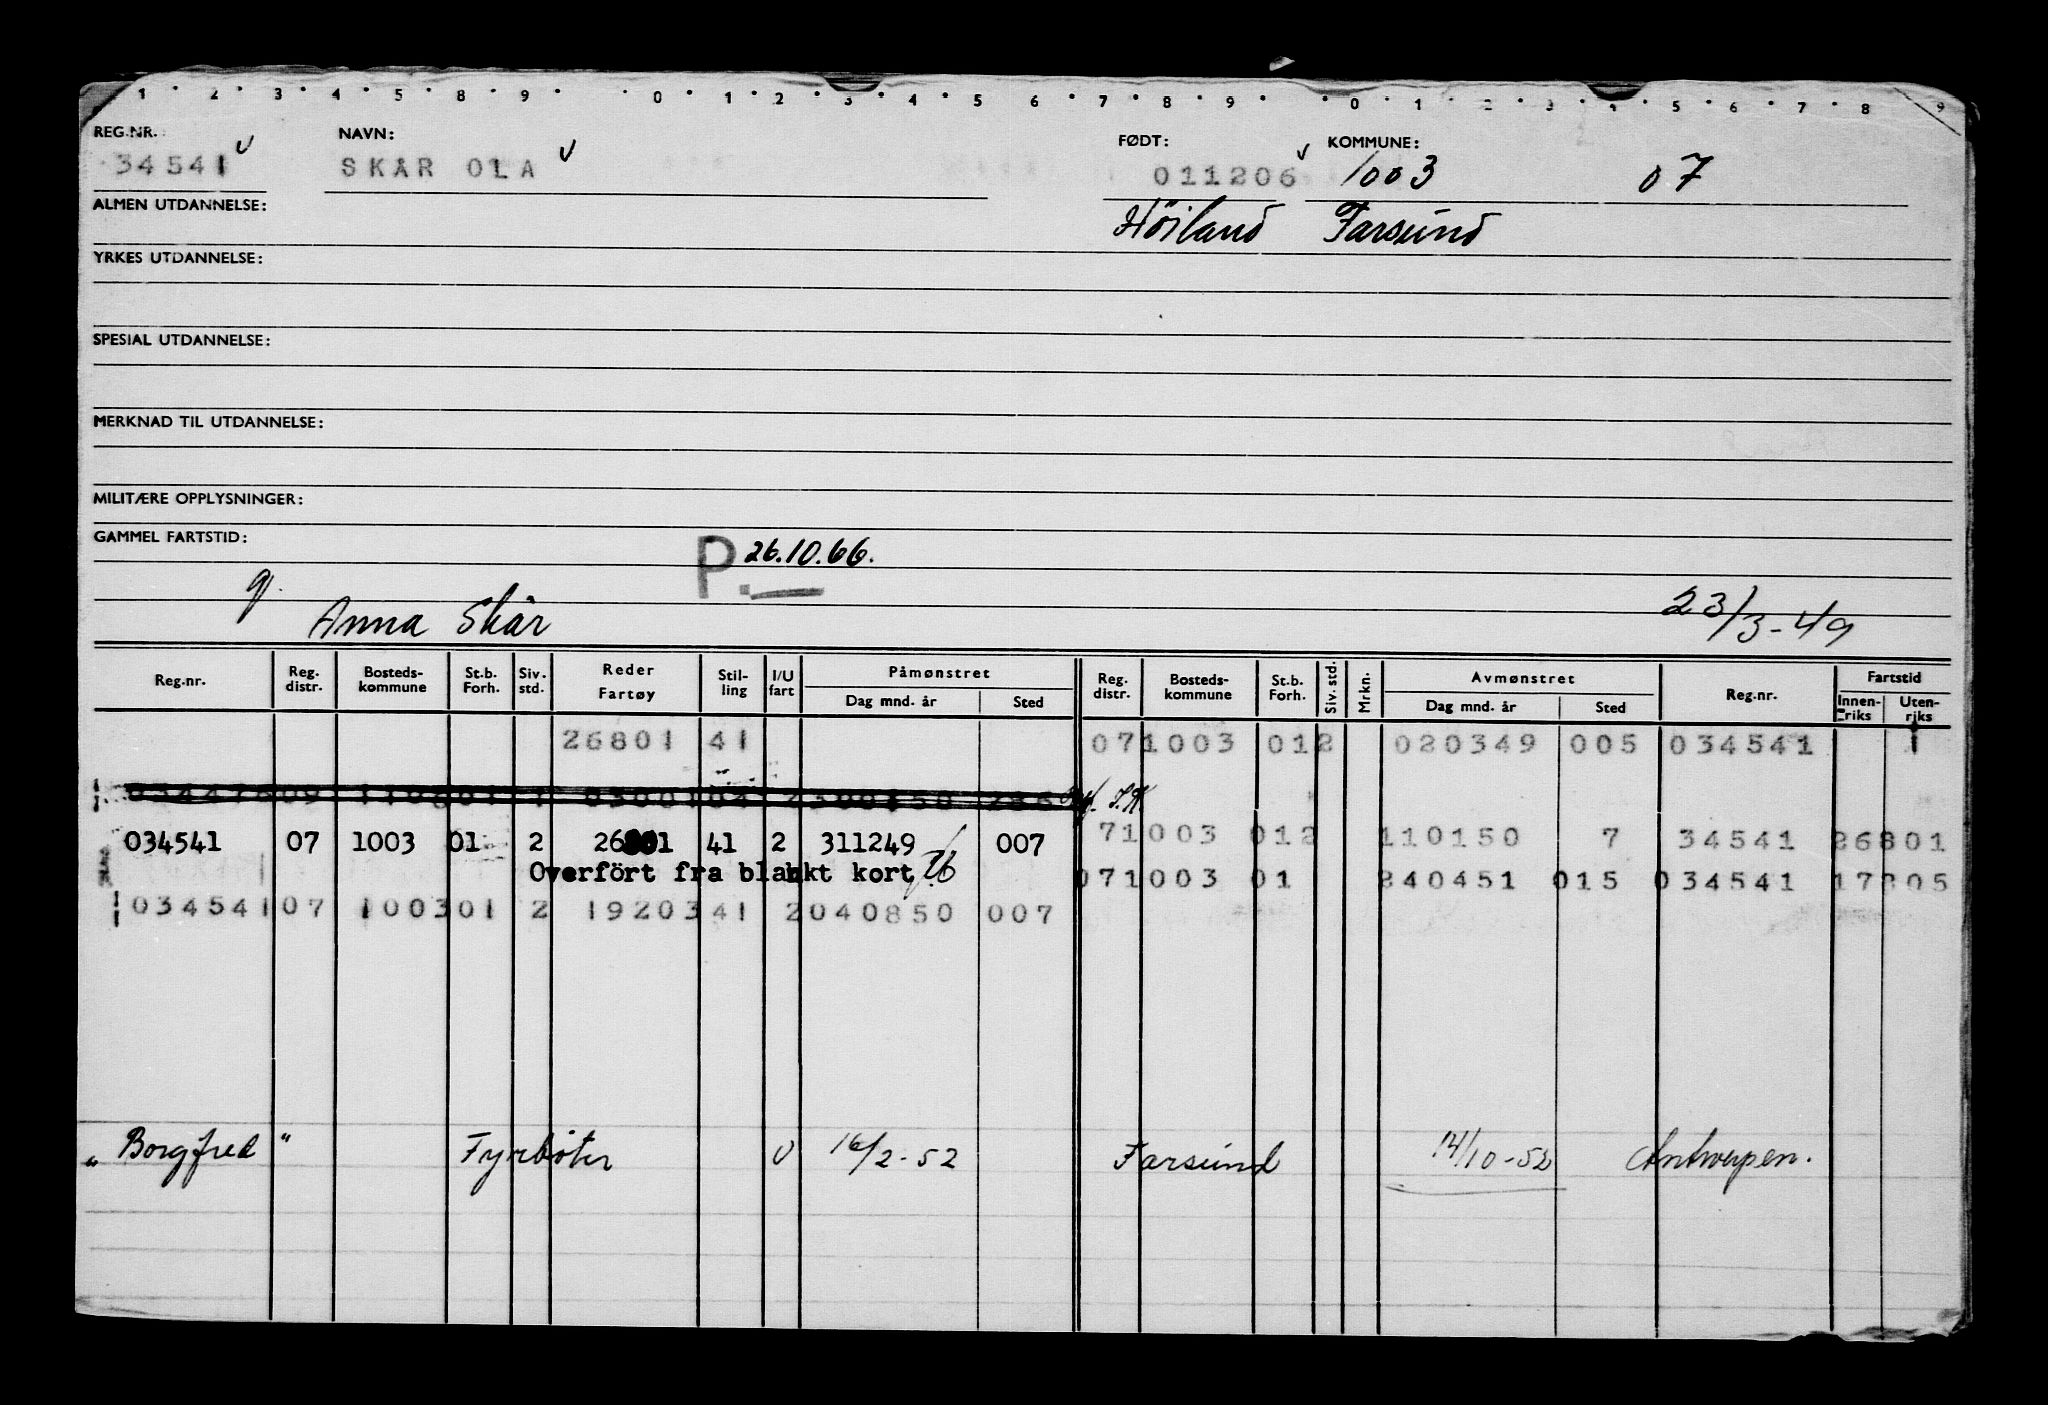 1 2 3 4 5 8 9 0 1 2 3 4 5 6 7 8 9 0 1 2 3 4 5 6 7 8 9
REG.NR. NAVN: FØDT: KOMMUNE:
34541 SKAR OLA 011206 1003 07
ALMEN UTDANNELSE: Höiland Farsund
YRKES UTDANNELSE:
SPESIAL UTDANNELSE:
MERKNAD TIL UTDANNELSE:
MILITÆRE OPPLYSNINGER:
GAMMEL FARTSTID: P. 26.10.66.
g. Anna Skår 23/3-49
Reg.nr. Reg. distr. Bosteds-kommune St.b. Forh. Siv. std. Reder Fartøy Stil-ling I/U fart Påmønstret Dag mnd. år Sted Reg. distr. Bosteds-kommune St.b. Forh. Siv. std. Mrkn. Avmønstret Dag mnd. år Sted Reg.nr. Fartstid Innen-riks Uten-riks
26801 41 071003 012 020349 005 034541 1
034541 07 1003 01 2 26801 41 2 311249 007 71003 012 110150 7 34541 26801
Overført fra blankt kort 071003 01 240451 015 034541 17805
034541 07 1003 01 2 19203 41 2 040850 007
„Borgfred" Fyrböter U 16/2-52 Farsund 14/10-52 Antwerpen.